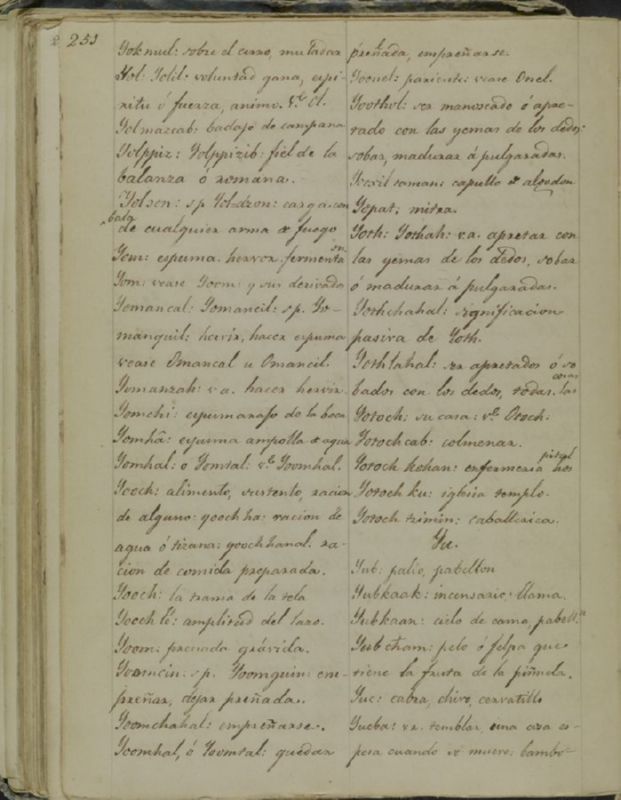 251
Yokmul: sobre el cerro, mu ladar
Yol: Yolil: voluntad gana, espi-
ritu ó fuerza, animo. Vᵉ Ol.
Yolmazcab: badajo de campana
Yolppiz: Yolppizib: fiel de la
balanza ó romana.
Yolson: sp Yoldzon: carga con
bala
de cualquier arma de fuego
Yom: espuma hervor fermenta
on
Yom: vease Yoom: y sus derivados
Yomancal: Yomancil: sp. Yo-
manquil: hervir, hacer espuma
vease Omancal u Omancil.
Yomanzah: va. hacer hervir.
Yomchi: espumarajo de la boca
Yomhâ: espuma ampolla de agua
Yomhal: o Yomtal: vᵉ Yoomhal.
Yooch: alimento, sustento, racion
de alguno: yoochha: racion de
agua ó tizana: yoochhanal. ra-
cion de comida preparada.
Yooch: la trama de la tela
Yooch lé: amplitud del lazo.
Yoom: preñada grávida.
Yoomcin: sp. Yoomquin: em-
preñar, dejar preñada.
Yoomchahal: empreñarse.
Yoomhal, ó Yoomtal: quedar
preñada, empreñarse.
Yoonel: pariente: vease Onel.
Yoothol: ser manoseado ó apre-
tado con las yemas de los dedos:
sobar, madurar á pulgaradas.
taman: capullo de algodon
Yopat: mitra.
Yoth: Yothah: va. apretar con
las yemas de los dedos, sobar
ó madurar á pulgaradas.
Yothchahal: significacion
pasiva de Yoth.
Yothlahal: ser apretados ó so
cosas
bados con los dedos, todas las
Yotoch: su casa: vᵉ Otoch:
Yotochcab: colmenar.
pital
Yotoch kohan: enfermeria hos
Yotoch ku: iglesia templo.
Yotoch tzimin: caballeriza.
Yu.
Yub: palio, pabellon
Yubkaak: incensario, llama.
Yubkaan: cielo de cama, pabellᵒⁿ
Yub cham: pelo ó felpa que
tiene la fruta de la piñuela.
Yuc: cabra, chivo, cervatillo
Yucba: vr. temblar, una cosa es-
pesa cuando se mueve: bambo-